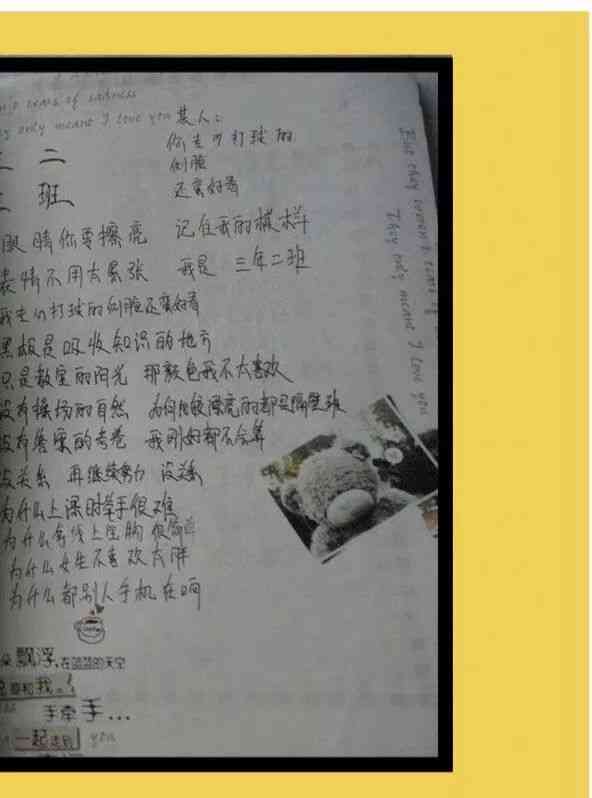 only meant I love you
某人:
你专心打球的
侧脸
还蛮好看
二
班
眼睛你要擦亮 记住我的模样
表情不用太紧张 我是 三年二班
我专心打球的侧脸还蛮好看
黑板是吸收知识的地方
只是教室的阳光 那颜色我不太喜欢
没有操场的自然 为何比较漂亮的都是隔壁班
没有答案的考卷 我刚好都不会算
没关系 再继续努力 没关系
为什么上课时举手很难
为什么 线上 胸 很简单
为什么女生不喜欢太胖
为什么都别人手机在响
飘浮,在蓝蓝的天空
和我
手牵手...
一起 you
But they weren't tears of
They only meant I love you